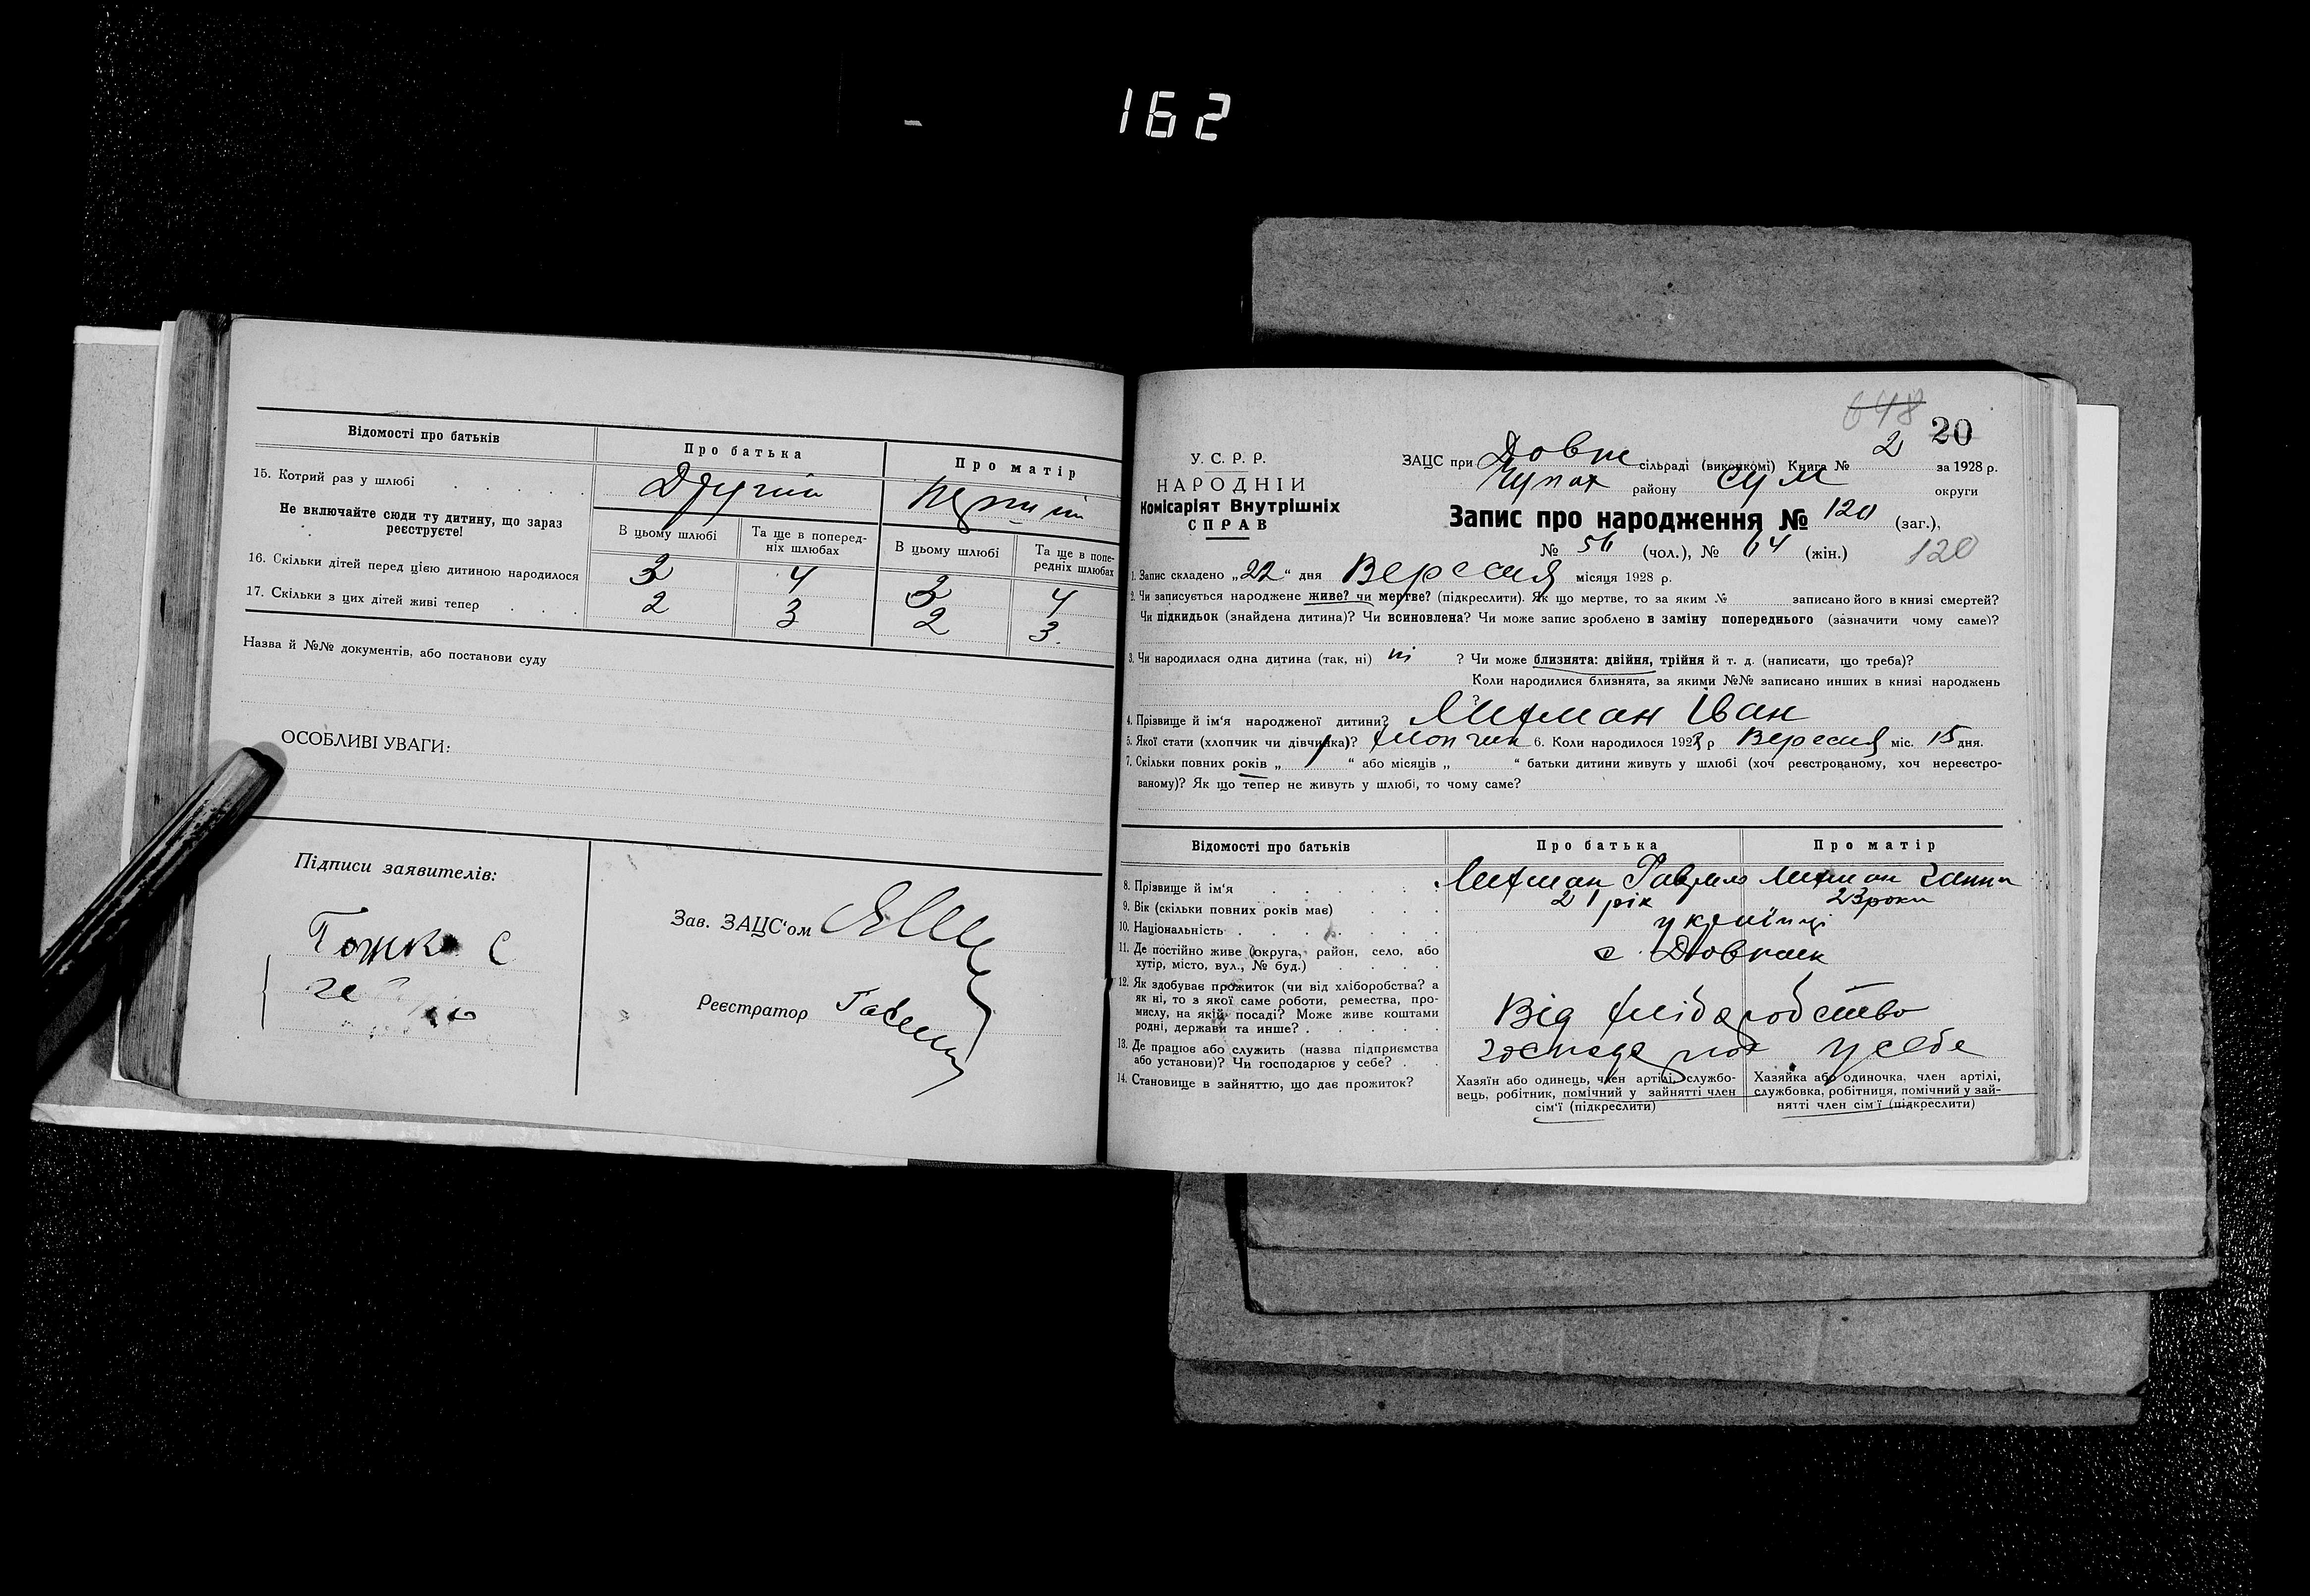 162
Відомості про батьків
Про батька
Про матір
15. Котрий раз у шлюбі
Другий
Не включайте сюди ту дитину, що зараз
реєструєте!
В цьому шлюбі
Та ще в поперед-
ніх шлюбах
В цьому шлюбі
Та ще в попе-
редніх шлюбах
16. Скільки дітей перед цією дитиною народилося
4
4
17. Скільки з цих дітей живі тепер
2 3 2 3.
Назва й №№ документів, або постанови суду
ОСОБЛИВІ УВАГИ:
Підписи заявителів:
Зав. ЗАЦС‘ом
Реєстратор
648 20
У. С. Р. Р.
НАРОДНІЙ
Комісаріят Внутрішніх
СПРАВ
ЗАЦС при Довж сільраді (виконкомі) Книга № 2 за 1928 р.
району Сум округи
Запис про народження № 120 (заг.),
№ 56 (чол.), № 64 (жін.) 120
1. Запис складено „22“ дня Вересня місяця 1928 р.
2. Чи записується народжене живе? чи мертве? (підкреслити). Як що мертве, то за яким № записано його в книзі смертей?
Чи підкидьок (знайдена дитина)? Чи всиновлена? Чи може запис зроблено в заміну попереднього (зазначити чому саме)?
3. Чи народилася одна дитина (так, ні) ні ? Чи може близнята: двійня, трійня й т. д. (написати, що треба)?
Коли народилися близнята, за якими №№ записано инших в книзі народжень
?
4. Прізвище й ім‘я народженої дитини? Литман Іван
5. Якої стати (хлопчик чи дівчинка)? хлопчик 6. Коли народилося 1928 р Вересня міс. 15 дня.
7. Скільки повних років „ 1 “ або місяців „ “ батьки дитини живуть у шлюбі (хоч реєстрованому, хоч нереєстро-
ваному)? Як що тепер не живуть у шлюбі, то чому саме?
Відомості про батьків
Про батька
Про матір
8. Прізвище й ім‘я
Литман Гаврило Литман Ганна
9. Вік (скільки повних років має)
21 рік 23 роки
10. Національність
українці
11. Де постійно живе (округа, район, село, або
хутір, місто, вул., № буд.)
с. Довжик
12. Як здобуває прожиток (чи від хліборобства? а
як ні, то з якої саме роботи, ремества, про-
мислу, на якій посаді? Може живе коштами
родні, держави та инше?
Від хліборобство
13. Де працює або служить (назва підприємства
або установи)? Чи господарює у себе?
у себе
14. Становище в зайняттю, що дає прожиток?
Хазяїн або одинець, член артілі, службо-
вець, робітник, помічний у зайнятті член
сім‘ї (підкреслити)
Хазяйка або одиночка, член артілі,
службовка, робітниця, помічний у зай-
нятті член сім‘ї (підкреслити)